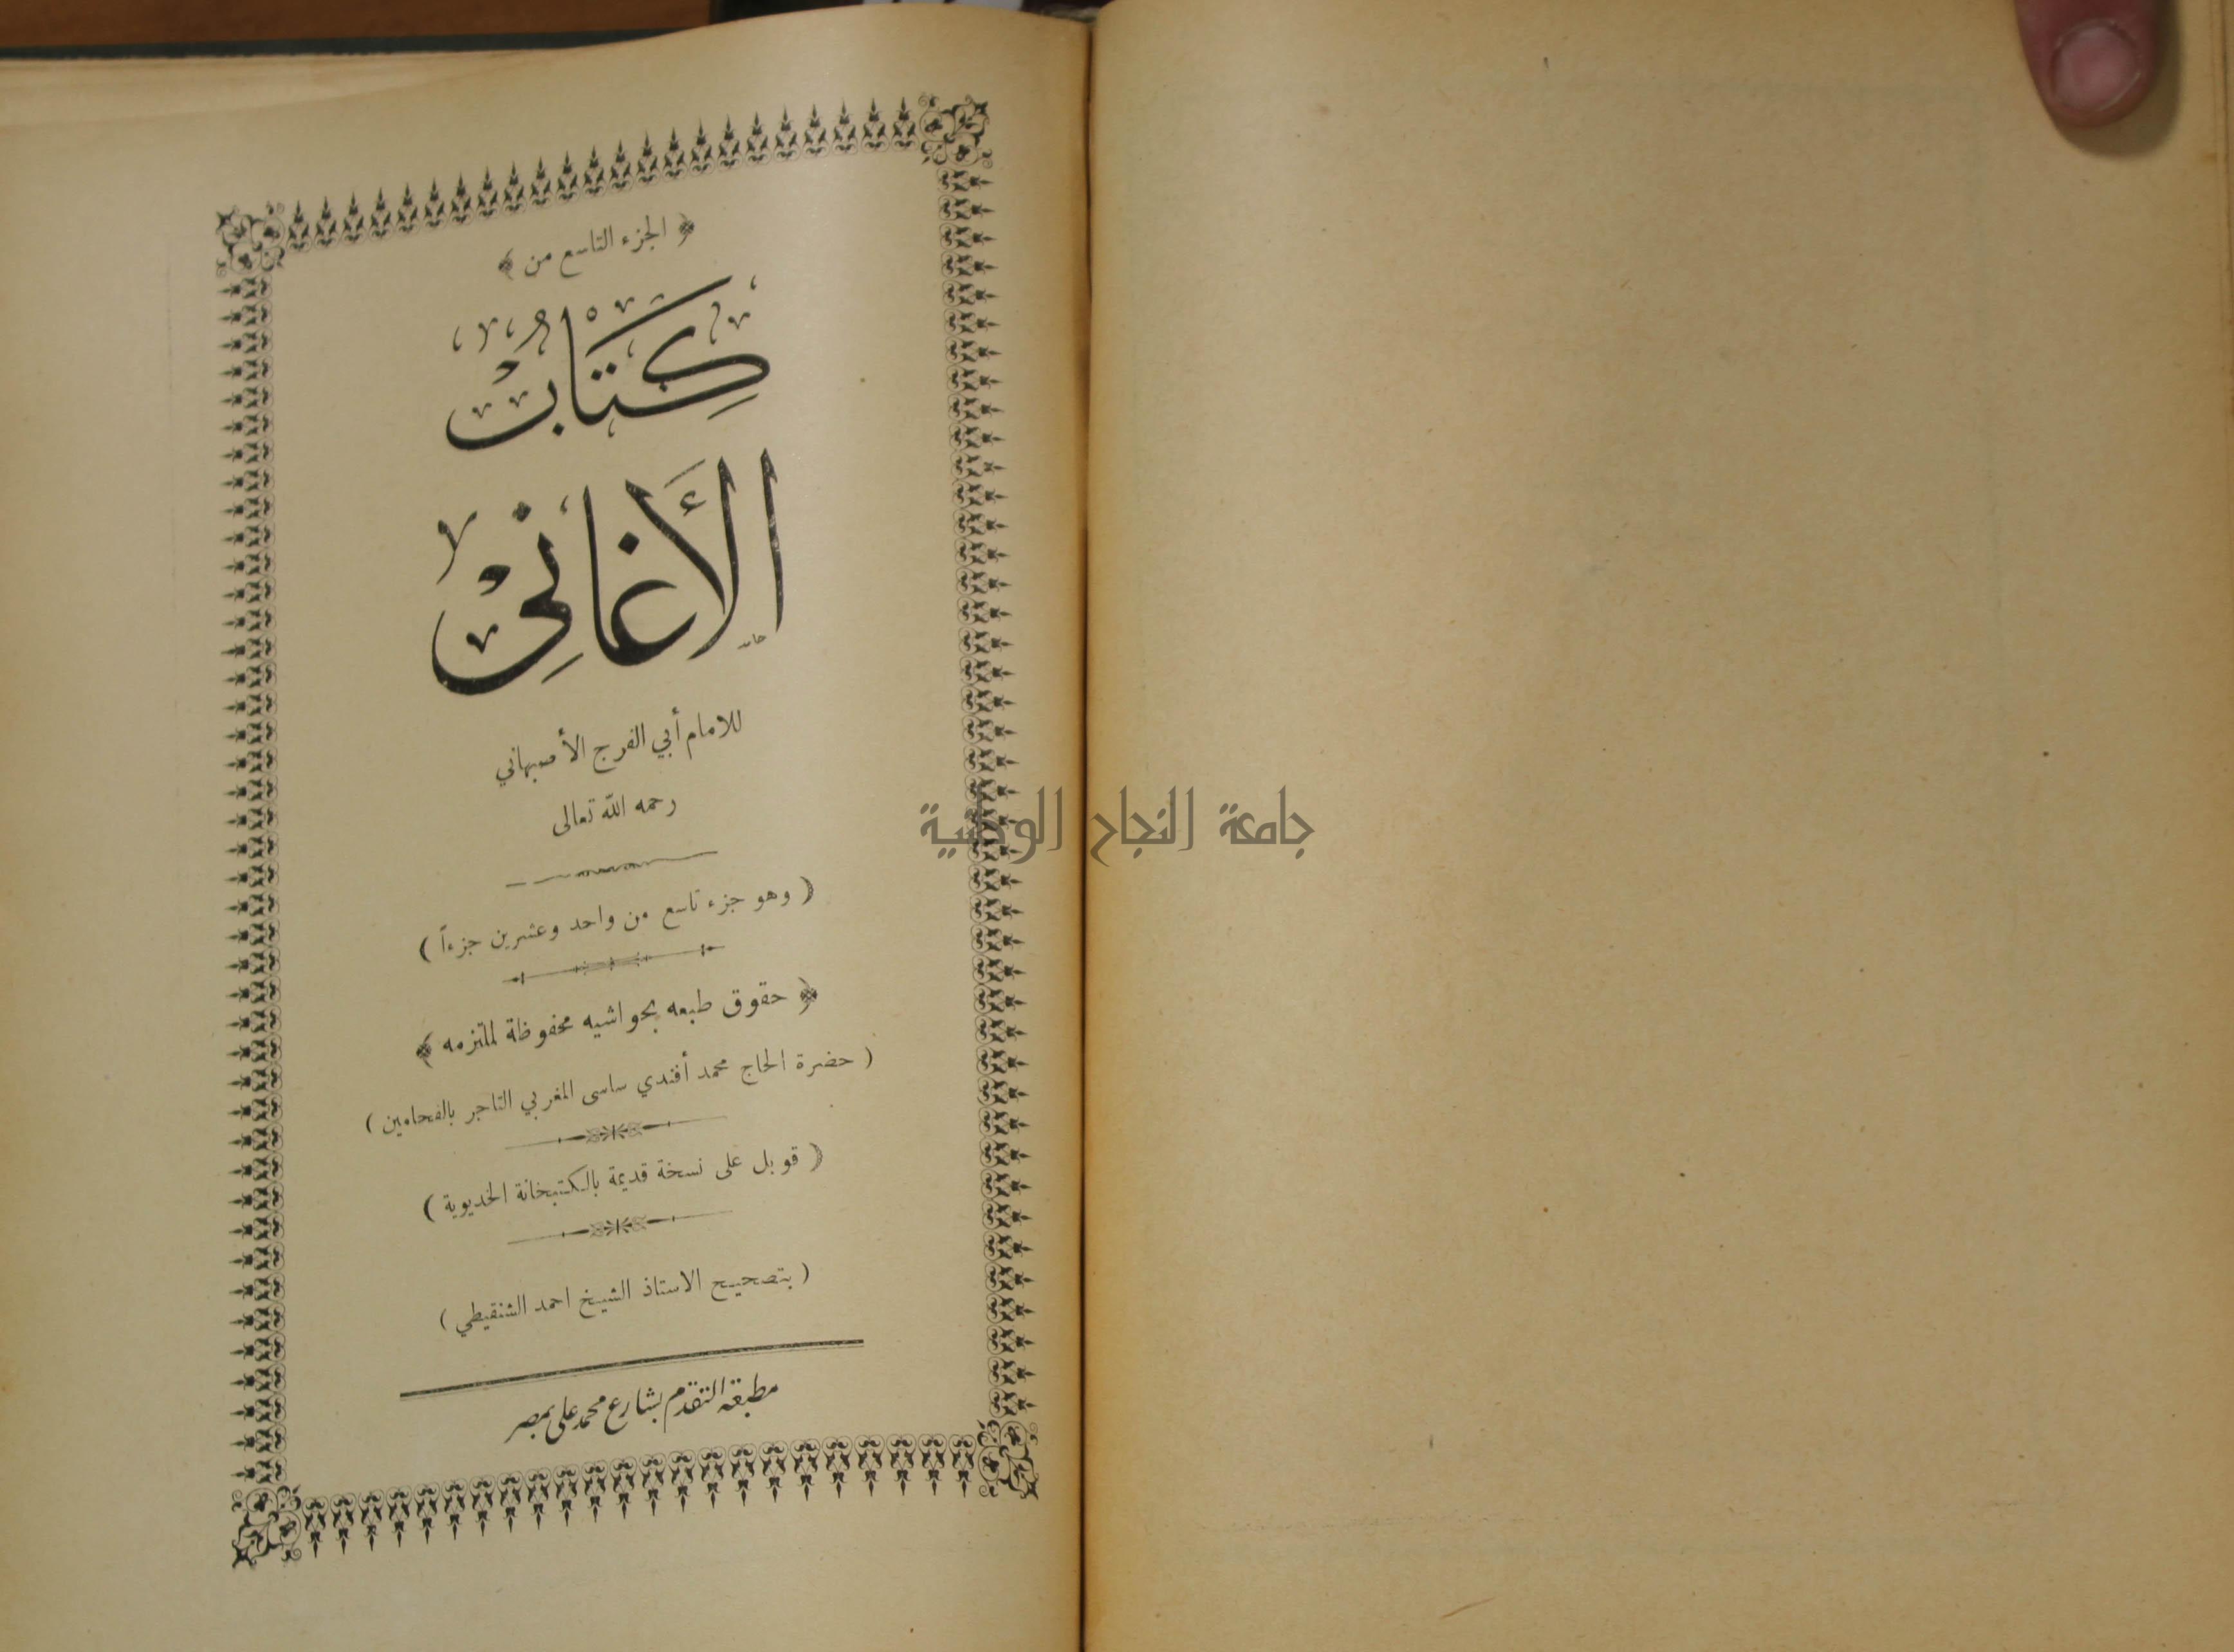 ﴿ الجزء التاسع من ﴾
كِتَابُ
الأَغَانِي
حامد
للامام أبي الفرج الأصبهاني
رحمه الله تعالى
جامعة النجاح الوطنية
( وهو جزء تاسع من واحد وعشرين جزءاً )
﴿ حقوق طبعه بحواشيه محفوظة لملتزمه ﴾
( حضرة الحاج محمد أفندي ساسى المغربي التاجر بالفحامين )
( قوبل على نسخة قديمة بالكتبخانة الخديوية )
( بتصحيح الاستاذ الشيخ احمد الشنقيطي )
مطبعة التقدم بشارع محمد على بمصر